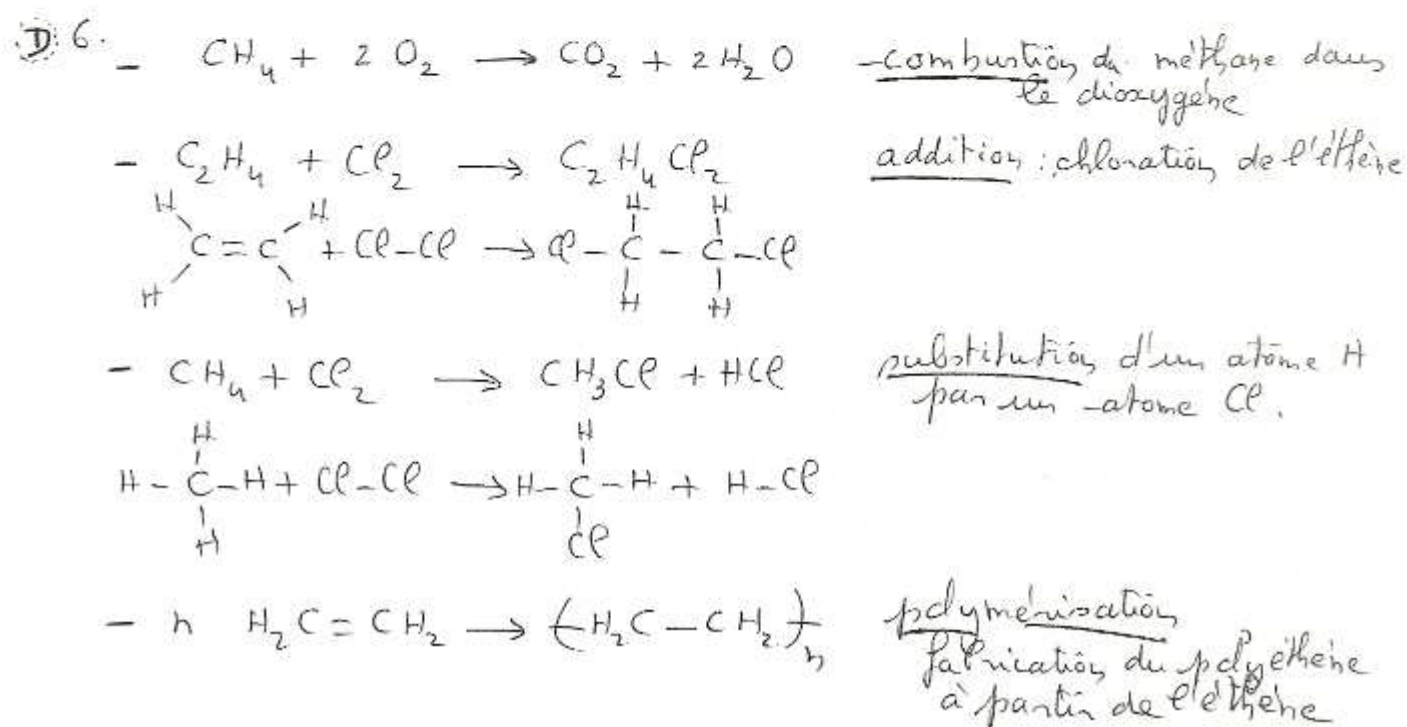 D 6.
- CH₄ + 2 O₂ → CO₂ + 2 H₂O - combustion du méthane dans
le dioxygène
- C₂H₄ + Cl₂ → C₂H₄Cl₂ addition : chloration de l'éthène
H H H H
C = C + Cl-Cl → Cl - C - C - Cl
H H H H
- CH₄ + Cl₂ → CH₃Cl + HCl substitution d'un atome H
par un atome Cl.
H H
H - C - H + Cl-Cl → H - C - H + H-Cl
H Cl
- n H₂C = CH₂ → (H₂C - CH₂)n polymérisation
fabrication du polyéthène
à partir de l'éthène